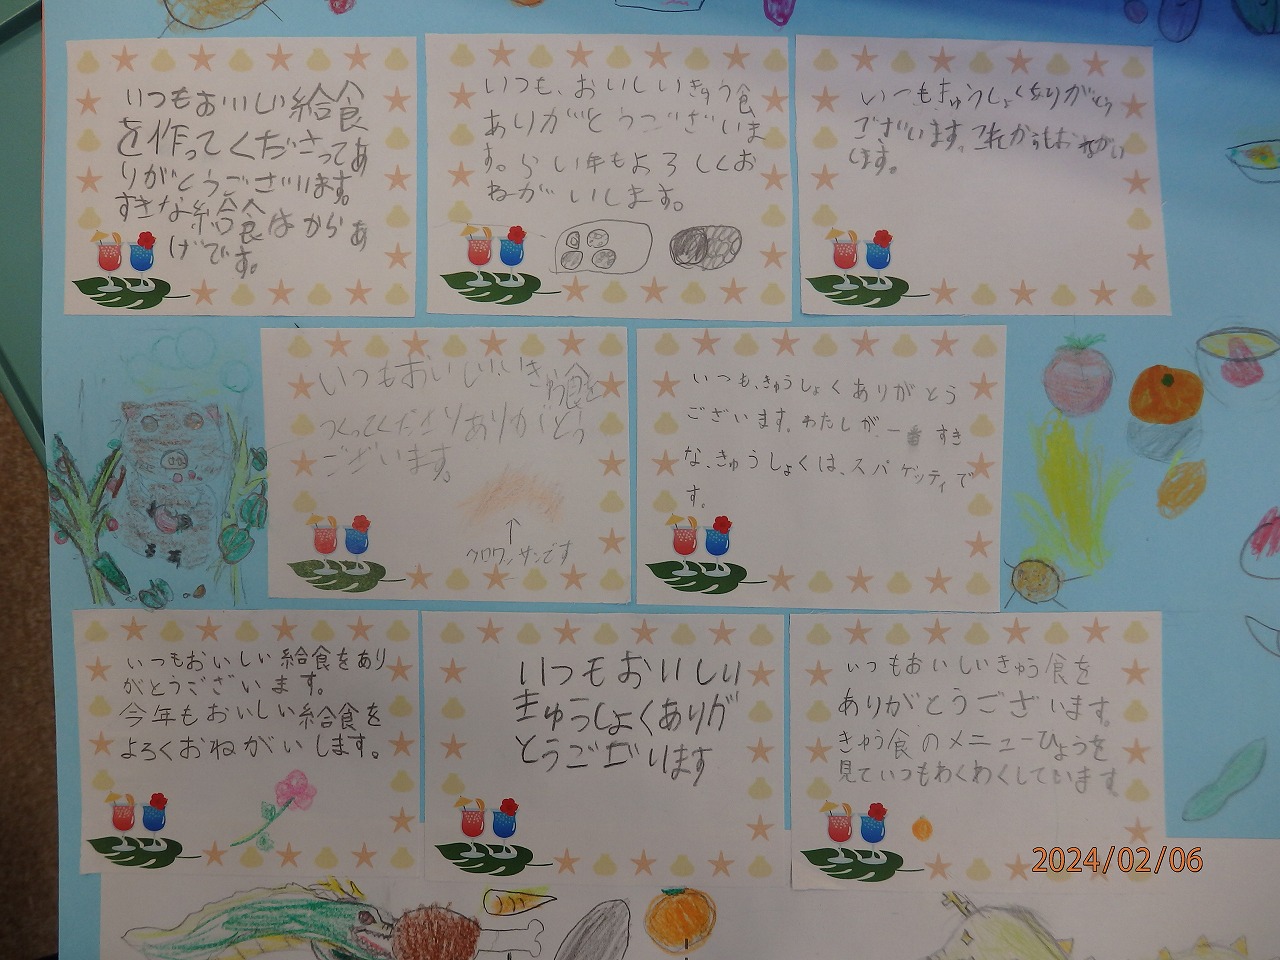 いつもおいしい給食
を作ってくださってあ
りがとうございます。
すきな給食はからあ
げです。
いつも、おいしいきゅう食
ありがとうございま
す。らい年もよろしくお
ねがいします。
いつもきゅうしょくありがとう
ございます。これからもおねがい
します。
いつもおいしいきゅう食を
つくってくださりありがとう
ございます。
↑
クロワッサンです
いつも、きゅうしょくありがとう
ございます。わたしが一番すき
な、きゅうしょくは、スパゲッティで
す。
いつもおいしい給食をあり
がとうございます。
今年もおいしい給食を
よろくおねがいします。
いつもおいしい
きゅうしょくありが
とうございます
いつもおいしいきゅう食を
ありがとうございます。
きゅう食のメニューひょうを
見ていつもわくわくしています。
2024/02/06